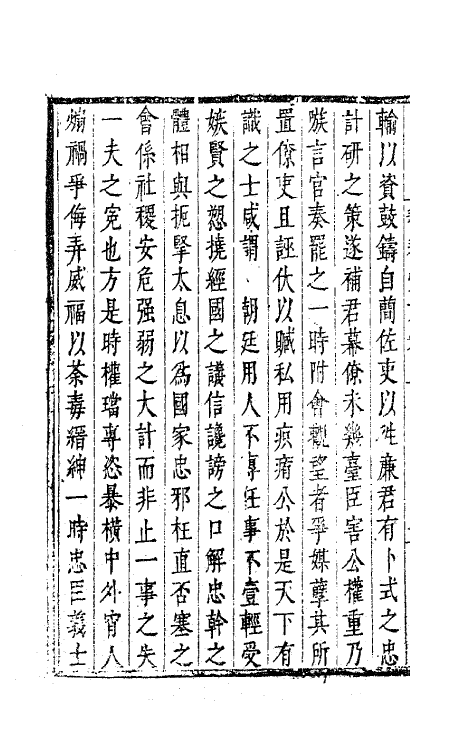 輸以資鼓鑄自蘭佐吏以進廉君有卜式之忠
計研之策遂補君幕僚未幾臺臣害公權重乃
嗾言官奏罷之一時附會觀望者爭媒孽其所
置僚吏且誣伏以贓私用痕痏公於是天下有
識之士咸謂 朝廷用人不專任事不壹輕受
嫉賢之愬撓經國之議信讒謗之口解忠幹之
體相與扼掔太息以為國家忠邪枉直否塞之
會係社稷安危强弱之大計而非止一事之失
一夫之寃也方是時權璫專恣暴橫中外宵人
煽禍爭侮弄威福以荼毒縉紳一時忠臣義士